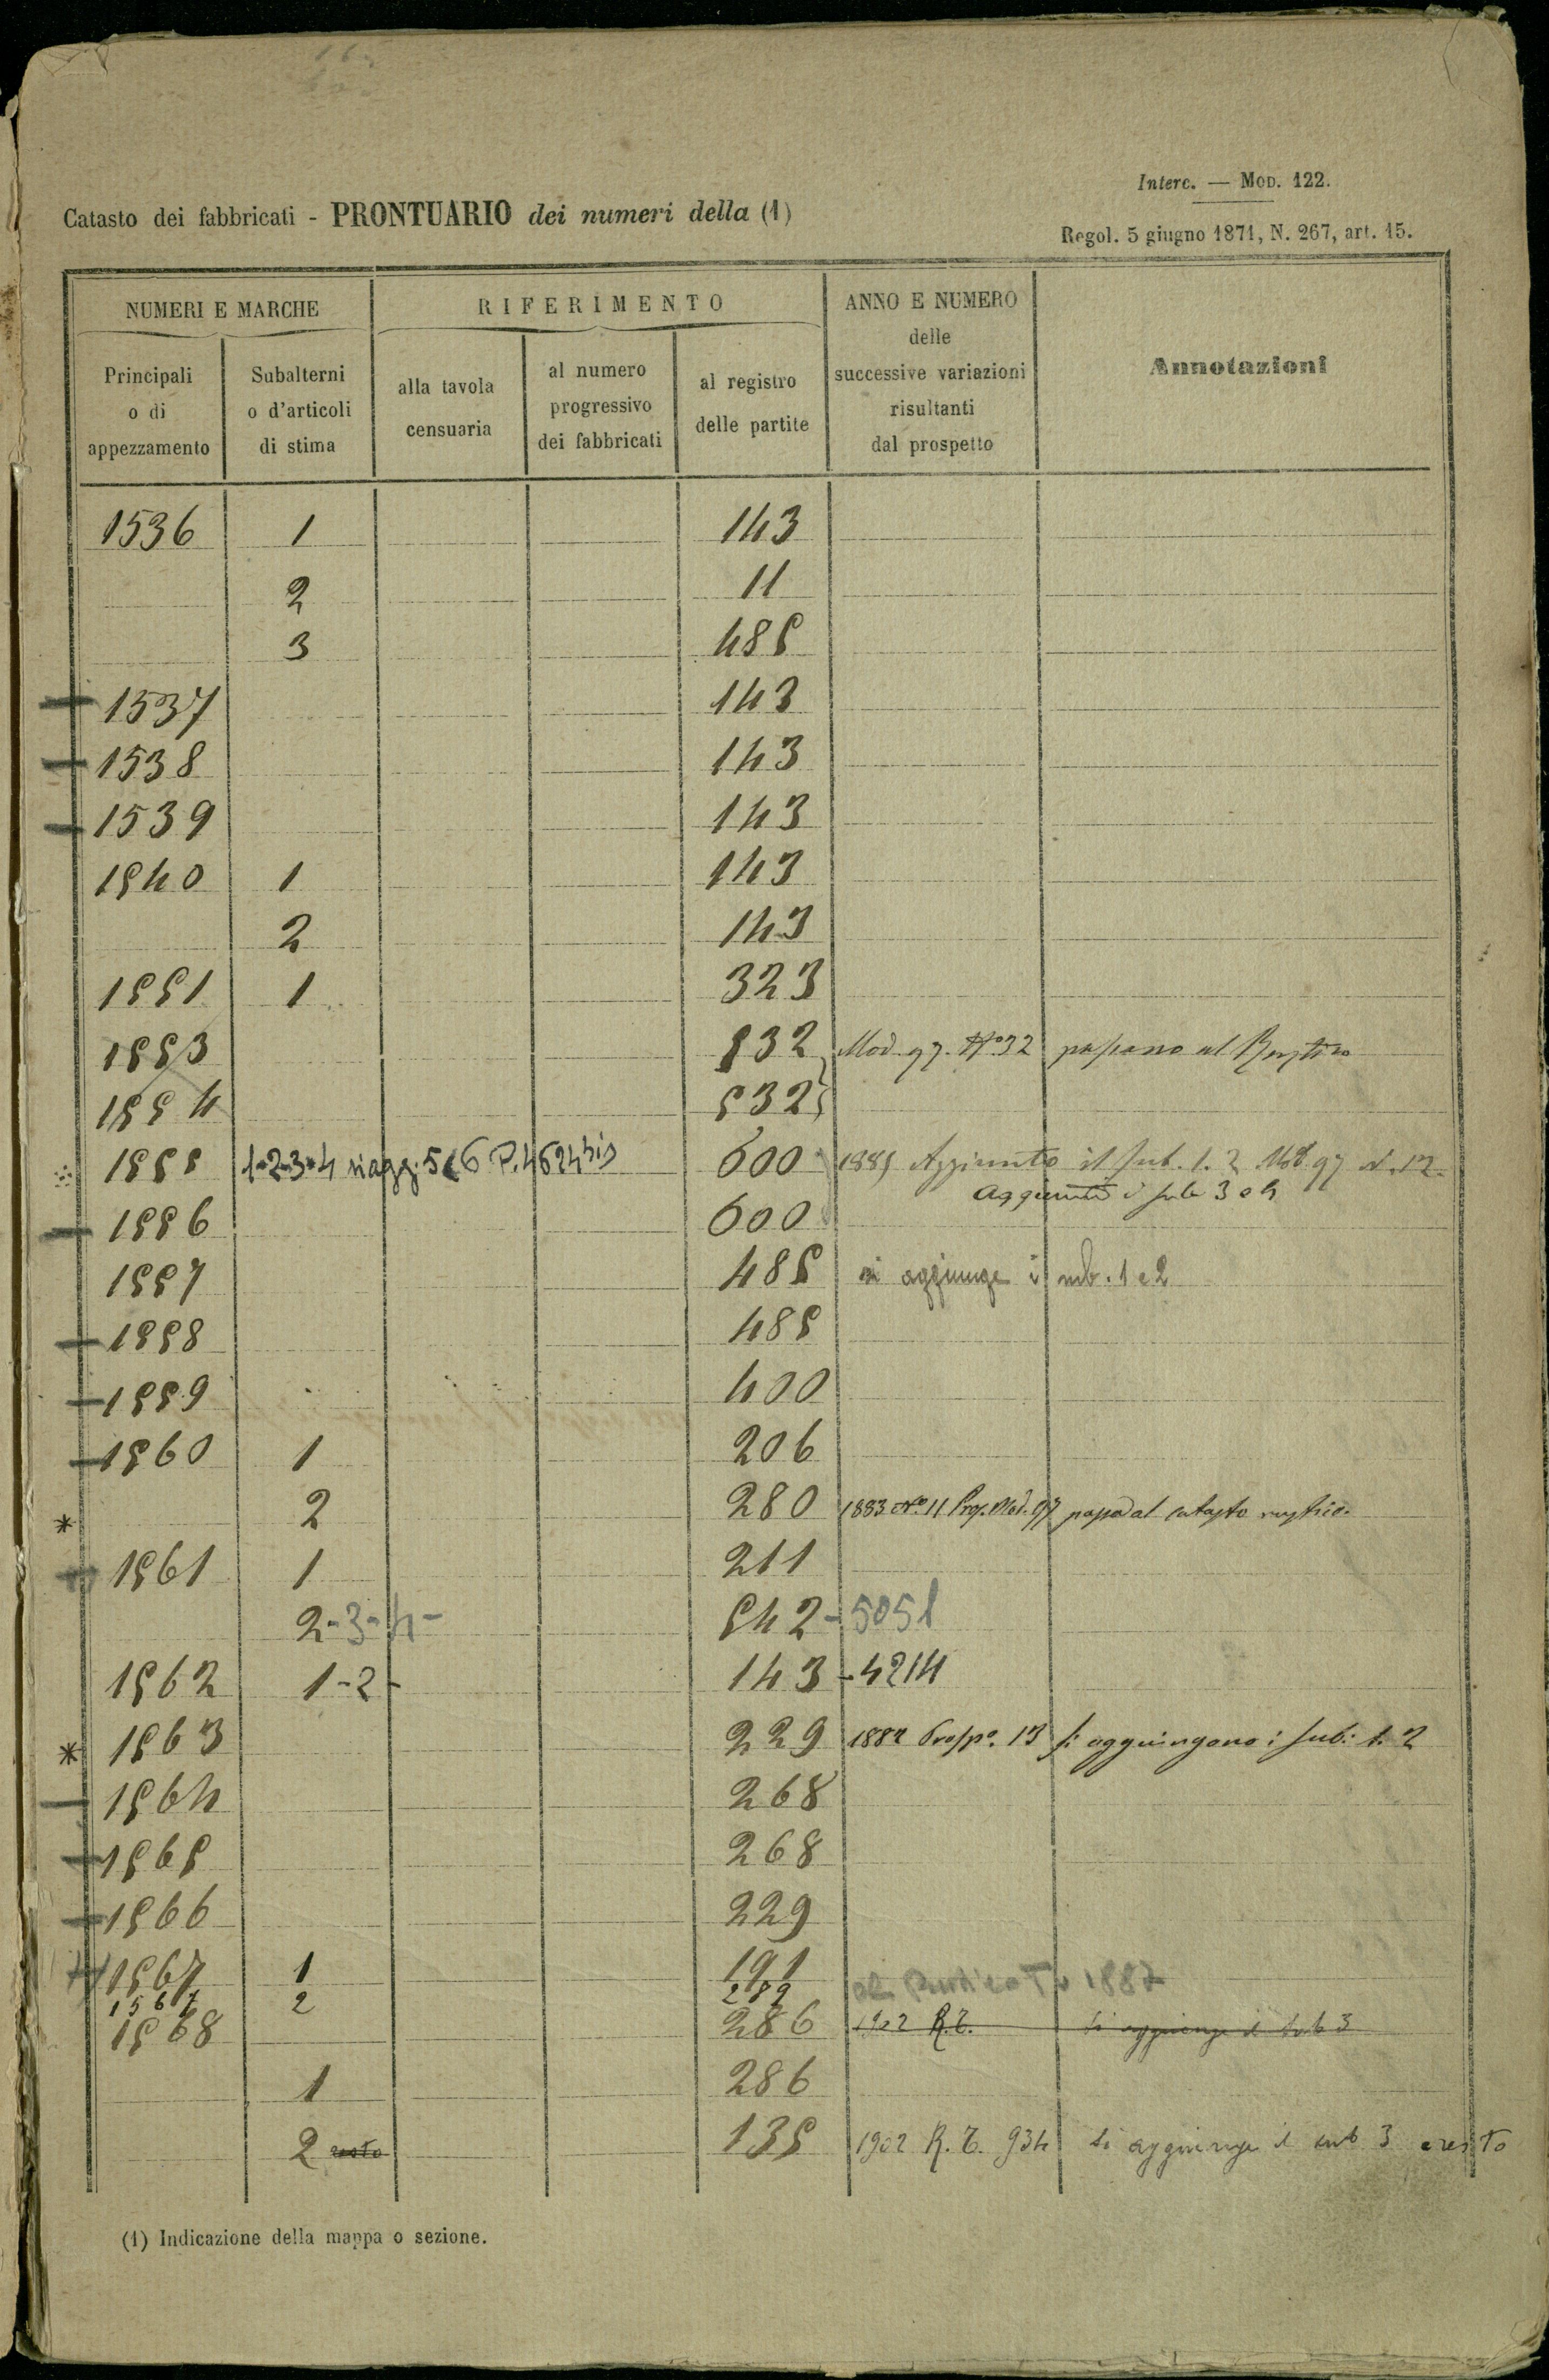 Interc. — MOD. 122.
Catasto dei fabbricati - PRONTUARIO dei numeri della (1)
Regol. 5 giugno 1871, N. 267, art. 15.
NUMERI E MARCHE
RIFERIMENTO
ANNO E NUMERO
delle
successive variazioni
risultanti
dal prospetto
Annotazioni
Principali
o di
appezzamento
Subalterni
o d'articoli
di stima
alla tavola
censuaria
al numero
progressivo
dei fabbricati
al registro
delle partite
1536 1 143
2 11
3 485
1537 143
1538 143
1539 143
1540 1 143
2 143
1551 1 323
1553 532 Mod. 97. No 32 passano al Rustico
1554 532
1555 1-2-3-4 si agg. 5 e 6 P. 4624 bis 600 1885 Aggiunto il sub. 1. 2 Mod. 97 N. 12.
Aggiunti i sub 3 e 4
1556 600
1557 485 si aggiunge i sub. 1 e 2
1558 485
1559 400
1560 1 206
2 280 1883 No. 11 Prosp. Mod. 97 passa al catasto rustico.
1561 1 211
2-3-4- 542-5051
1562 1-2- 143-4214
1563 229 1882 Prospo. 13 si aggiungono i sub: 1. 2
1564 268
1565 268
1566 229
1567 1 191
1887
1567 2 289
1568 286 1902 R.T. si aggiunge il sub 3
1 286
2 resto 135 1902 R.T. 934 si aggiunge il sub 3 resto
(1) Indicazione della mappa o sezione.